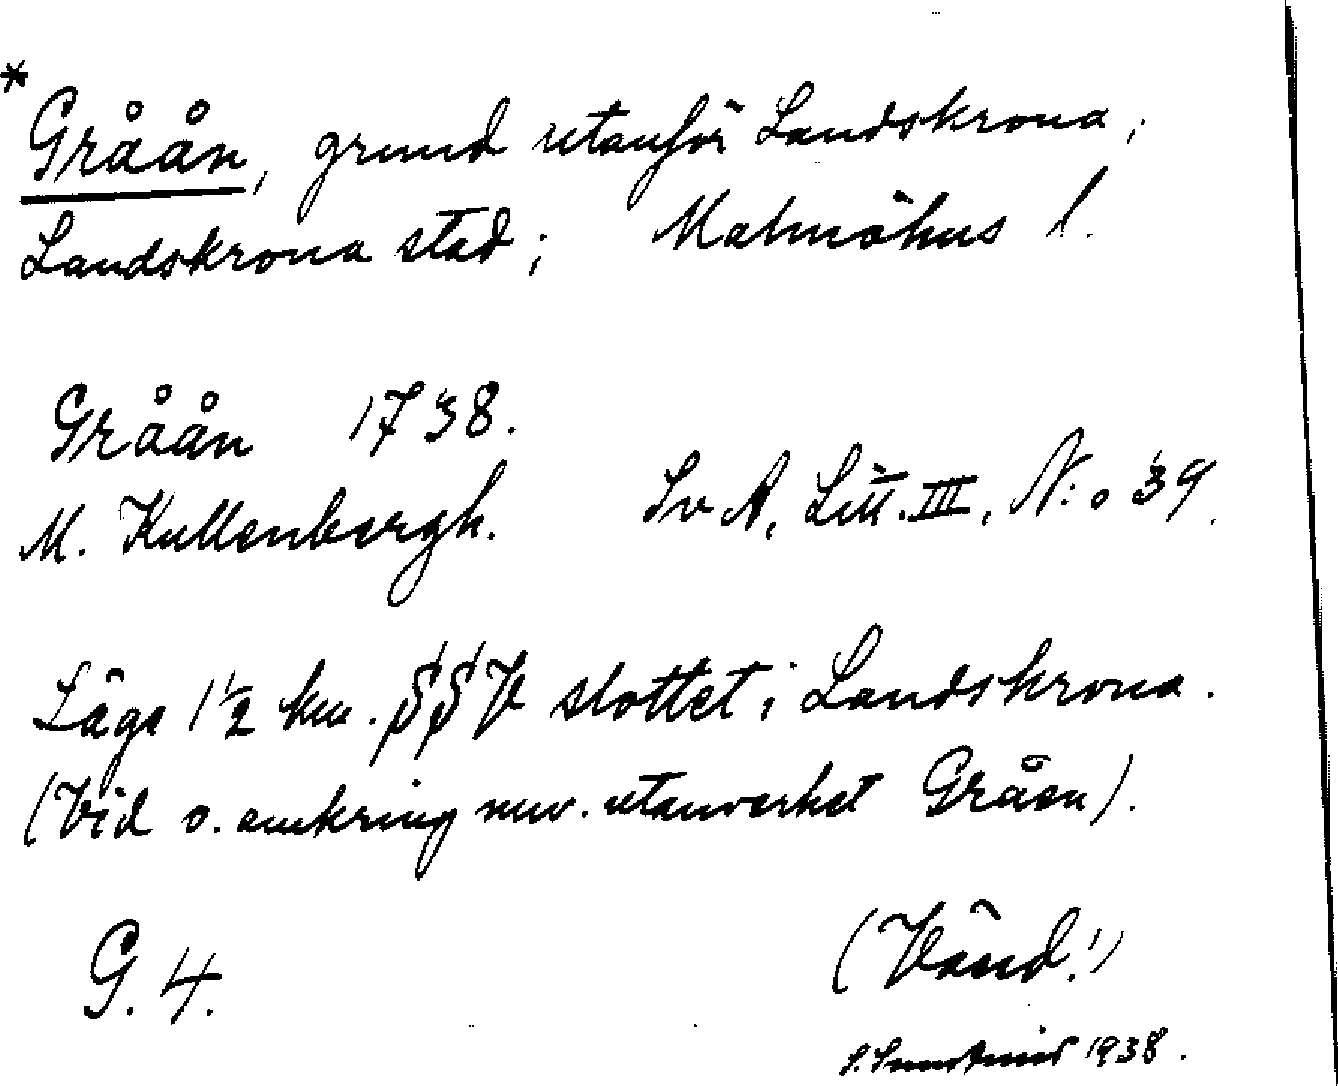 * Gråån, grund utanför Landskrona;
Landskrona stad; Malmöhus l.
Gråån 1738.
M. Kullenbergh. Sv A, Litt. III, N:o 39.
Läge 1½ km. SSV slottet i Landskrona.
(Vid o. omkring nuv. utanverket Gråen).
G. 4. (Vänd!)
1938.